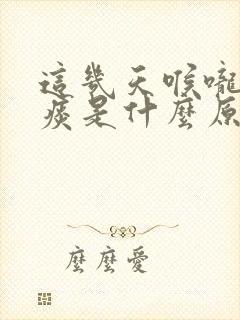 這幾天喉嚨
痰是什麼原
麼麼愛